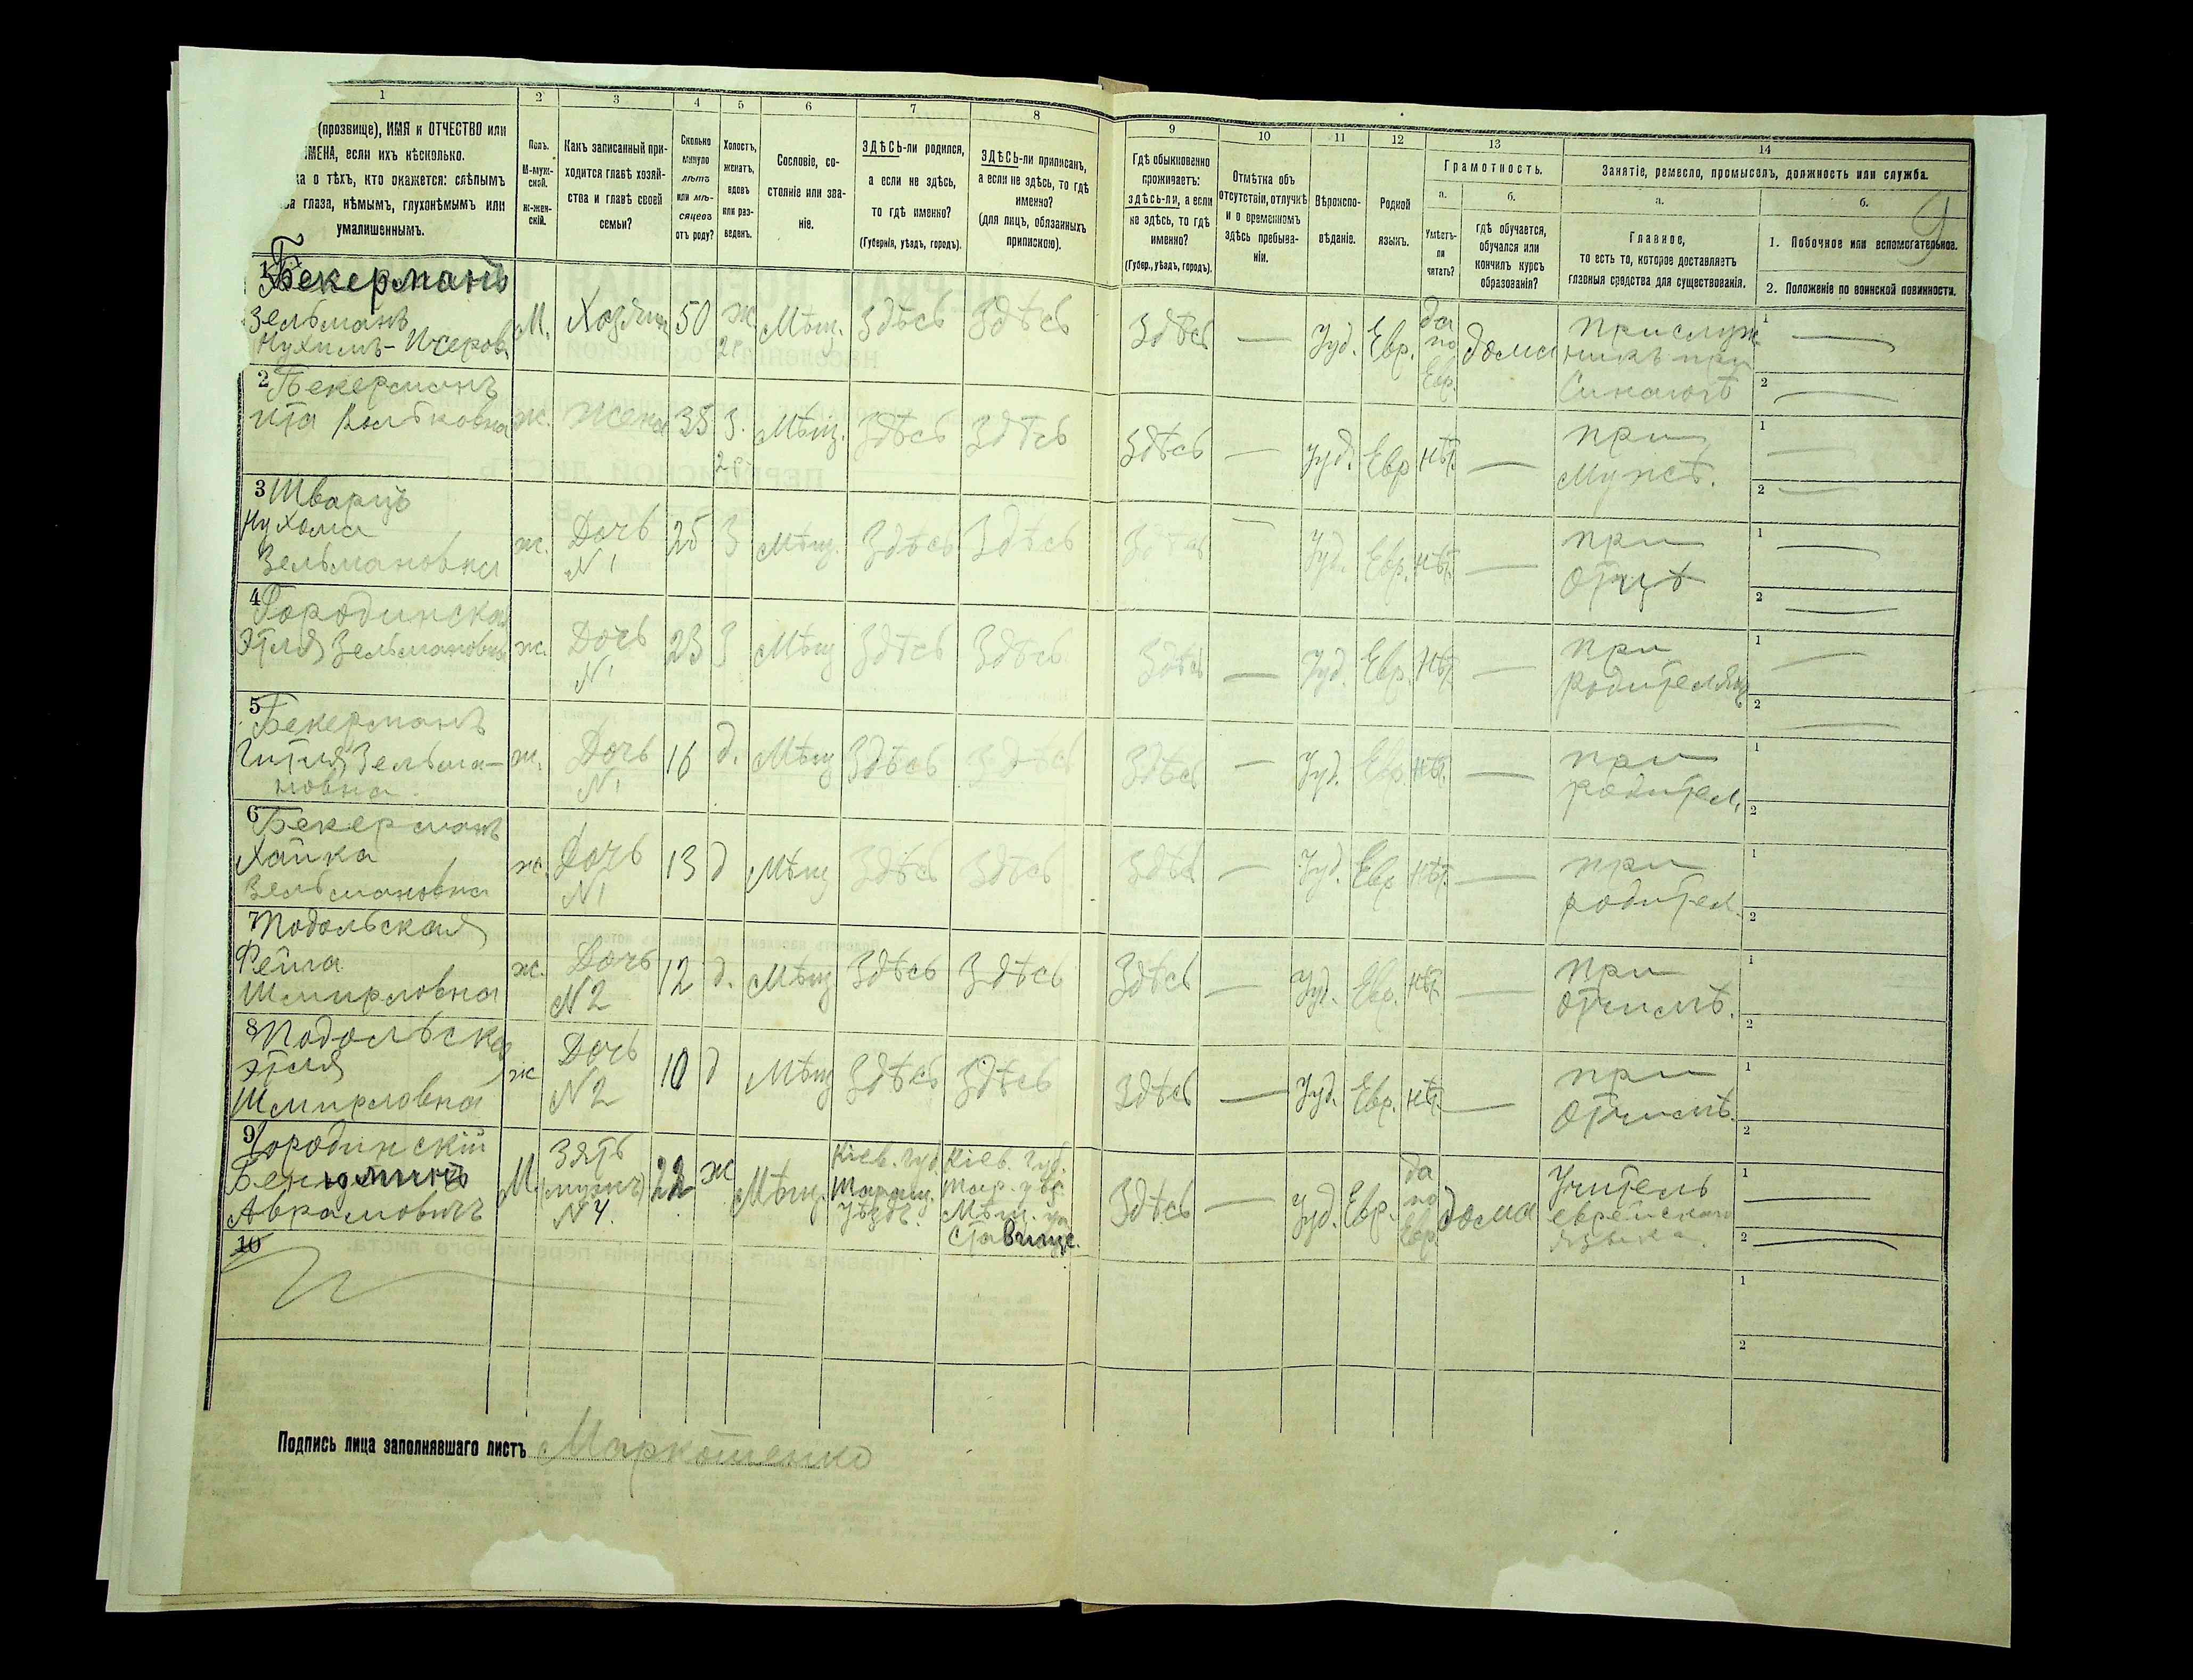 1 2 3 4 5 6 7 8 9 10 11 12 13 14
(прозвище), ИМЯ и ОТЧЕСТВО или
ИМЕНА, если ихъ нѣсколько.
ка о тѣхъ, кто окажется: слѣпымъ
глаза, нѣмымъ, глухонѣмымъ или
умалишеннымъ.
Полъ.
М-муж-
ской.
ж-жен-
скій.
Какъ записанный при-
ходится главѣ хозяй-
ства и главѣ своей
семьи?
Сколько
минуло
лѣтъ
или мѣ-
сяцевъ
отъ роду?
Холостъ,
женатъ,
вдовъ
или раз-
веденъ.
Сословіе, со-
стояніе или зва-
ніе.
ЗДѢСЬ-ли родился,
а если не здѣсь,
то гдѣ именно?
(Губернія, уѣздъ, городъ).
ЗДѢСЬ-ли приписанъ,
а если не здѣсь, то гдѣ
именно?
(для лицъ, обязанныхъ
припискою).
Гдѣ обыкновенно
проживаетъ:
здѣсь-ли, а если
не здѣсь, то гдѣ
именно?
(Губер., уѣздъ, городъ).
Отмѣтка объ
отсутствіи, отлучкѣ
и о временномъ
здѣсь пребыва-
ніи.
Вѣроиспо-
вѣданіе.
Родной
языкъ.
Грамотность.
а.
Умѣетъ-
ли
читать?
б.
гдѣ обучается,
обучался или
кончилъ курсъ
образованія?
Занятіе, ремесло, промыселъ, должность или служба.
а.
Главное,
то есть то, которое доставляетъ
главныя средства для существованія.
б.
1. Побочное или вспомогательное.
2. Положеніе по воинской повинности.
9
1 Бекерманъ
Зельманъ
Нухимъ-
М. Хозяин 50 ж Мѣщ. Здѣсь Здѣсь Здѣсь — Іуд. Евр. да по Евр. дома
прислуж
никъ при
Синагогѣ
1 —
2 —
2 Бекерманъ
Ита
ж. Жена 35 З. Мѣщ. Здѣсь Здѣсь Здѣсь — Іуд. Евр нѣт. —
при
Мужѣ.
1 —
2 —
3 Шварцъ
Нухома
Зельмановна
ж. Дочь N1 25 З Мѣщ. Здѣсь Здѣсь Здѣсь — Іуд. Евр. нѣт. —
при
Отцѣ
1 —
2 —
4 Городинская
Этля Зельмановна
ж. Дочь N1 23 З Мѣщ Здѣсь Здѣсь Здѣсь — Іуд. Евр. нѣт. —
при
родителяхъ
1 —
2 —
5 Бекерманъ
Гитля Зельма-
новна.
ж. Дочь N1 16 д. Мѣщ Здѣсь Здѣсь Здѣсь — Іуд. Евр. нѣт. —
при
родител.
1
2
6 Бекерманъ
Хайка
Зельмановна
ж. Дочь N1 13 д Мѣщ Здѣсь Здѣсь Здѣсь — Іуд. Евр нѣт. —
при
родител.
1
2
7 Подольская
Фейга
Шмирловна
ж. Дочь N2 12 д. Мѣщ Здѣсь Здѣсь Здѣсь — Іуд. Евр. нѣт. —
при
Отчимѣ.
1
2
8 Подольская
Этля
Шмирловна
ж Дочь N2 10 д Мѣщ Здѣсь Здѣсь Здѣсь — Іуд. Евр. нѣт. —
при
Отчимѣ.
1
2
9 Городинскій
Бенюминъ
Аврамовичъ
М. Зять (мужъ) N4. 22 ж Мѣщ.
Кіев. Губ.
Таращ.
Уѣздъ.
Кіев. Губ.
Тар. у.
Мѣщ.
Ставище.
Здѣсь — Іуд. Евр. да по Евр. дома
Учитель
еврейскаго
языка.
1 —
2 —
10
1
2
Подпись лица заполнявшаго листъ Маркотенко